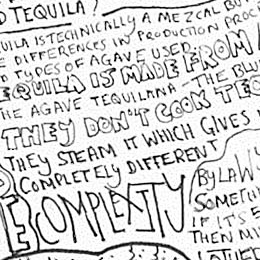 D TEQUILA?
UILA IS TECHNICALLY A MEZCAL BU
E DIFFERENCES IN PRODUCTION PROCE
D TYPES OF AGAVE USED.
EQUILA IS MADE FROM A
HE AGAVE TEQUILANA - THE BLU
THEY DON'T COOK TEQ
THEY STEAM IT WHICH GIVES
COMPLETELY DIFFERENT
COMPLEXITY
BY LAW
SOMETHI
IF IT'S
THEN MI